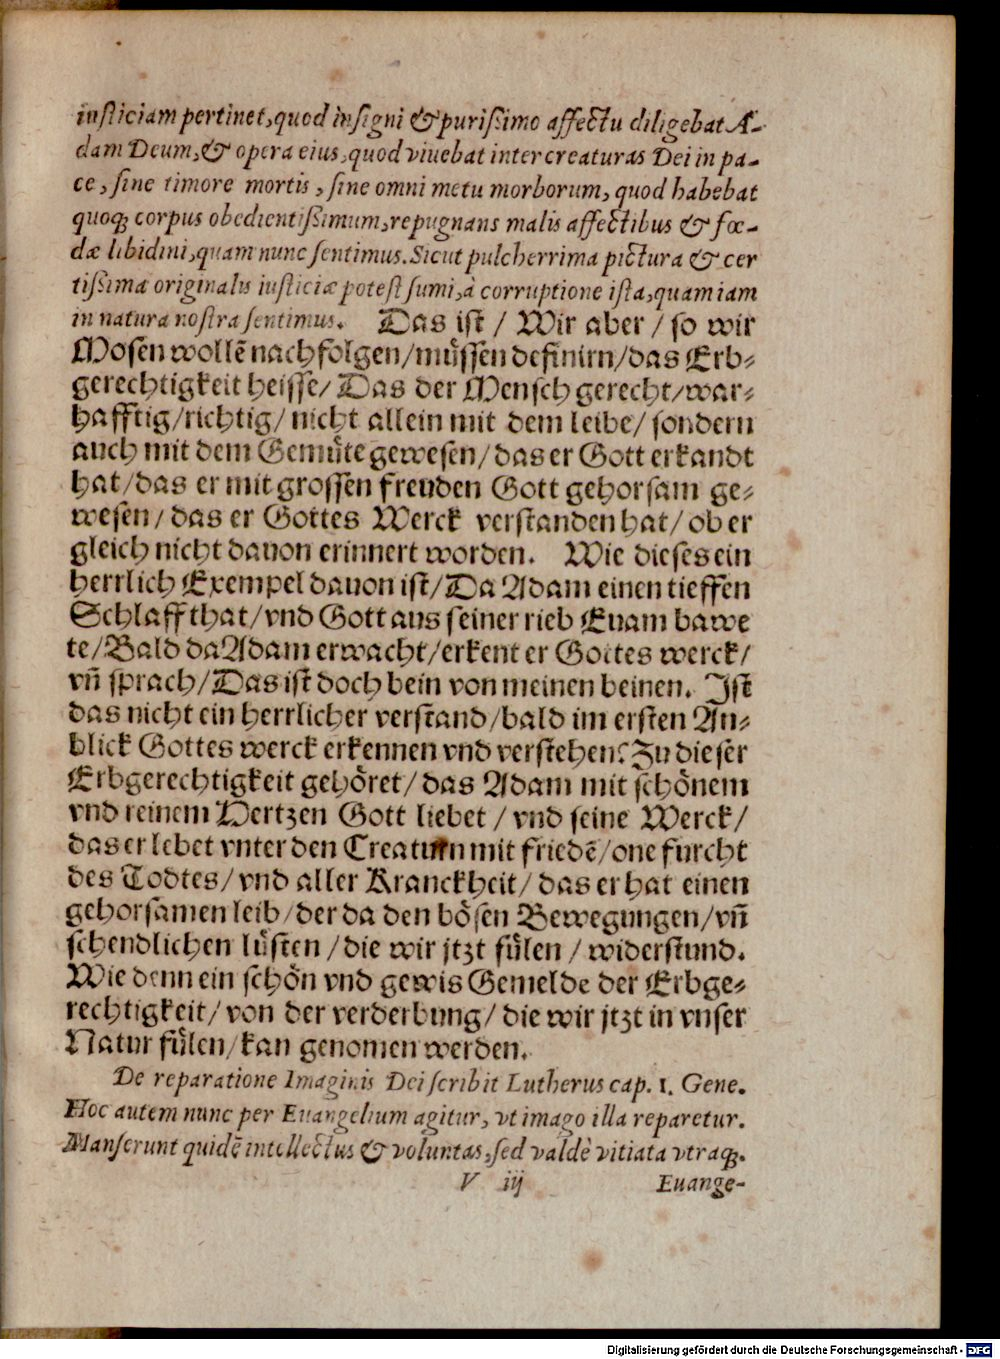 iusticiam pertinet, quod insigni & purißimo affectu diligebat A-
dam Deum, & opera eius, quod viuebat inter creaturas Dei in pa-
ce, sine timore mortis, sine omni metu morborum, quod habebat
quoq; corpus obedientißimum, repugnans malis affectibus & fœ-
dæ libidini, quam nunc sentimus. Sicut pulcherrima pictura & cer
tißima originalis iusticiæ potest sumi, à corruptione ista, quam iam
in natura nostra sentimus. Das ist / Wir aber / so wir
Mosen wollē nachfolgen / müssen definirn / das Erb-
gerechtigkeit heisse / Das der Mensch gerecht / war-
hafftig / richtig / nicht allein mit dem leibe / sondern
auch mit dem Gemüte gewesen / das er Gott erkandt
hat / das er mit grossen freuden Gott gehorsam ge-
wesen / das er Gottes Werck verstanden hat / ob er
gleich nicht dauon erinnert worden. Wie dieses ein
herrlich Exempel dauon ist / Da Adam einen tieffen
Schlaff that / vnd Gott aus seiner rieb Euam bawe
te / Bald da Adam erwacht / erkent er Gottes werck /
vn̄ sprach / Das ist doch bein von meinen beinen. Ist
das nicht ein herrlicher verstand / bald im ersten An-
blick Gottes werck erkennen vnd verstehen? Zu dieser
Erbgerechtigkeit gehöret / das Adam mit schönem
vnd reinem Hertzen Gott liebet / vnd seine Werck /
das er lebet vnter den Creaturn mit friedē / one furcht
des Todtes / vnd aller Kranckheit / das er hat einen
gehorsamen leib / der da den bösen Bewegungen / vn̄
schendlichen lüsten / die wir jtzt fülen / widerstund.
Wie denn ein schön vnd gewis Gemelde der Erbge-
rechtigkeit / von der verderbung / die wir jtzt in vnser
Natur fülen / kan genomen werden.
De reparatione Imaginis Dei scribit Lutherus cap. 1. Gene.
Hoc autem nunc per Euangelium agitur, vt imago illa reparetur.
Manserunt quidē intellectus & voluntas, sed valdè vitiata vtraq;.
V iij Euange-
Digitalisierung gefördert durch die Deutsche Forschungsgemeinschaft - DFG